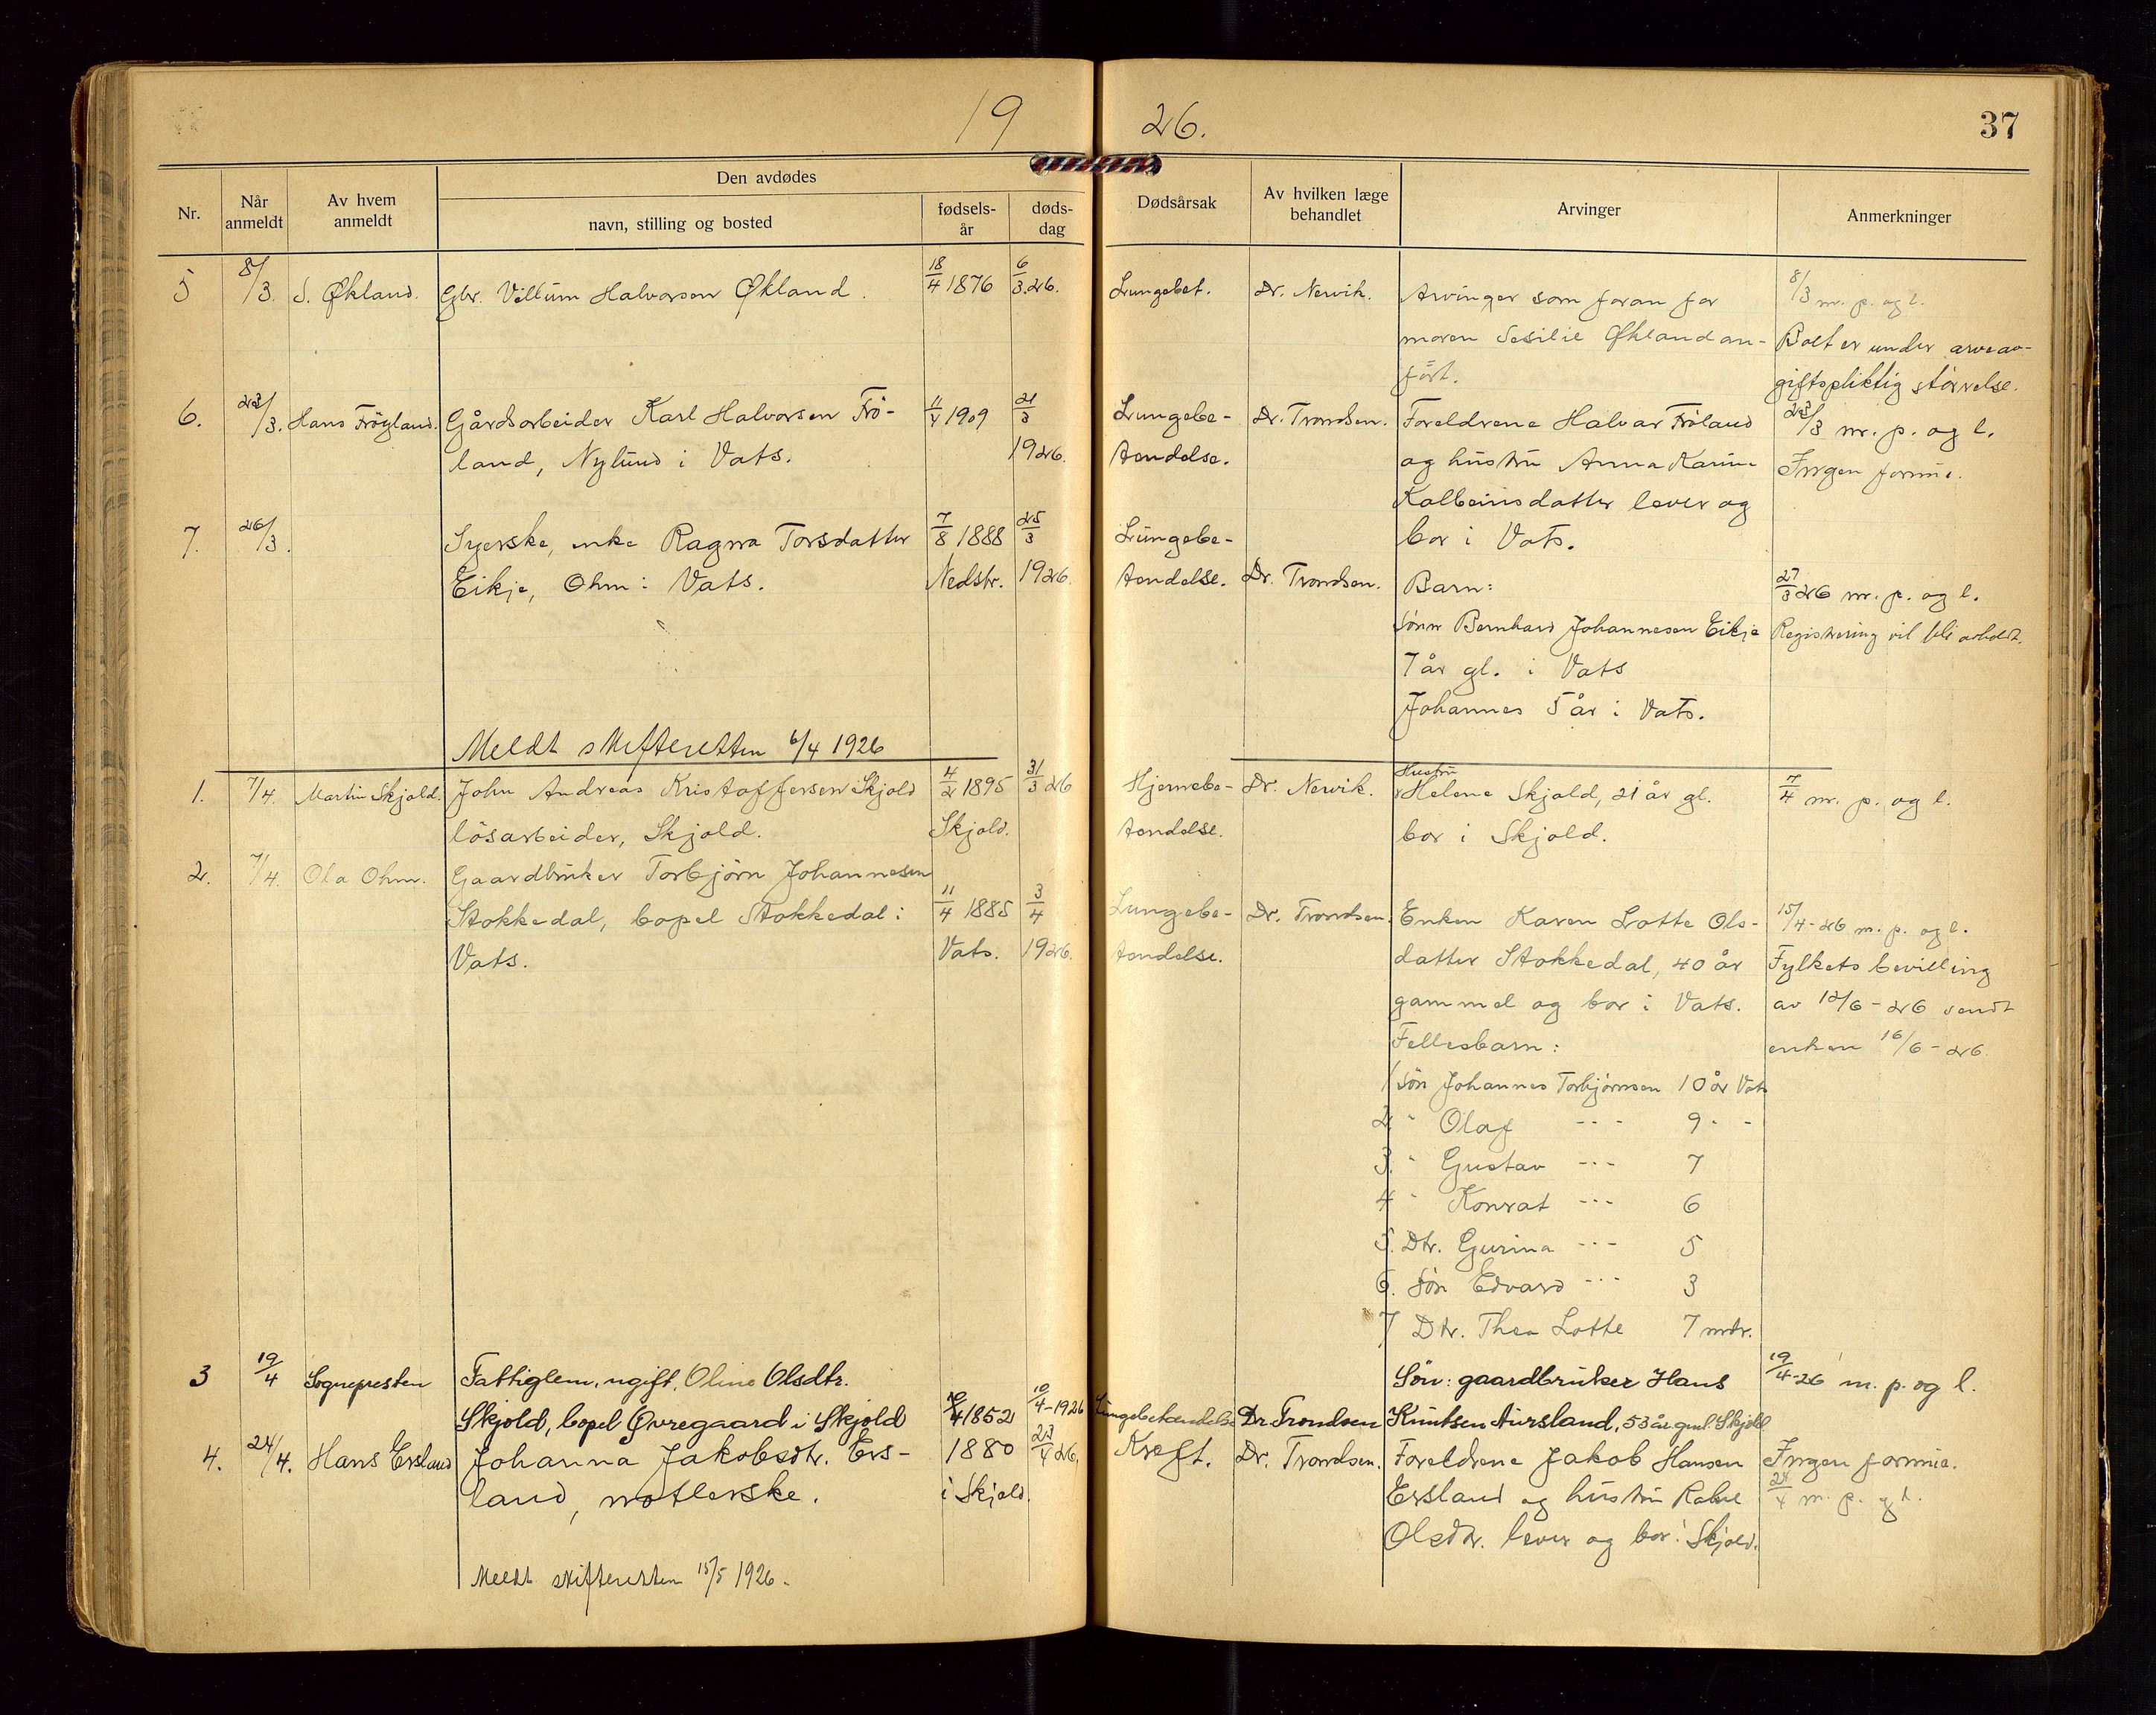 19 26.
37
Nr.
Når anmeldt
Av hvem anmeldt
Den avdødes
navn, stilling og bosted
fødsels-år
døds-dag
Dødsårsak
Av hvilken læge behandlet
Arvinger
Anmerkninger
5 8/3. S. Økland. Gbr. Villum Halvorsen Økland. 18/4 1876 6/3.26. Lungebet. Dr. Nervik. Arvinger som foran for 8/3 m. p. og l.
moren Sesilie Økland an- Boet er under arveav-
ført. giftspliktig størrelse.
6. 23/3. Hans Fröyland. Gårdsarbeider Karl Halvorsen Frö- 11/4 1909 21/3 Lungebe- Dr. Trondsen. Foreldrene Halvar Fröland 23/3 m. p. og l.
land, Nylund i Vats. 1926. tendelse. og hustru Anna Karine Ingen formue.
Kolbeinsdatter lever og
bor i Vats.
7. 26/3. Syerske, enke Ragna Torsdatter 7/8 1888 25/3 Lungebe-
Eikje, Ohm i Vats. Nedstr. 1926. tendelse. Dr. Trondsen. Barn: 27/3 26 m. p. og l.
Sönn Bernhard Johannesen Eikje Registrering vil bli avholdt.
7 år gl. i Vats
Johannes 5 år i Vats.
Meldt skifteretten 6/4 1926
1. 7/4. Martin Skjold. John Andreas Kristoffersen Skjold 4/2 1895 31/3 26 Hjernebe- Dr. Nervik. Hustru Helene Skjold, 21 år gl. 7/4 m. p. og l.
lösarbeider, Skjold. Skjold. tendelse. bor i Skjold.
2. 7/4. Ola Ohm. Gaardbruker Torbjörn Johannesen
Stokkedal, bopel Stokkedal i 11/4 1885 3/4 Lungebe- Dr. Trondsen. Enken Karen Lotte Ols- 15/4-26 m. p. og l.
Vats. Vats. 1926. tendelse. datter Stokkedal, 40 år Fylkets bevilling
gammel og bor i Vats. av 12/6-26 sendt
Fellesbarn: enken 16/6-26
1 Sön Johannes Torbjörnsen 10 år Vats
2 " Olaf - - - 9 - -
3. " Gustav - - - 7
4 " Konrat - - - 6
5. Dtr. Gurina - - - 5
6. Sön Edvard - - - 3
7 Dtr. Thea Lotte 7 mdr.
3 19/4 Sognepresten Fattiglem, ugift, Oline Olsdtr. Sön: gaardbruker Hans 19/4-26 m. p. og l.
Skjold, bopel Øvregaard i Skjold 1852 10/4-1926 Lungebetændelse Dr. Trondsen Knutsen Aursland, 53 år gml. Skjold
4. 24/4. Hans Ersland Johanna Jakobsdtr. Ers- 1880 23/4 26. Kreft. Dr. Trondsen. Foreldrene Jakob Hansen Ingen formue.
land, i Skjold. Ersland og hustru 24/4 m. p. og l.
Olsdtr. lever og bor i Skjold.
Meldt skifteretten 15/5 1926.